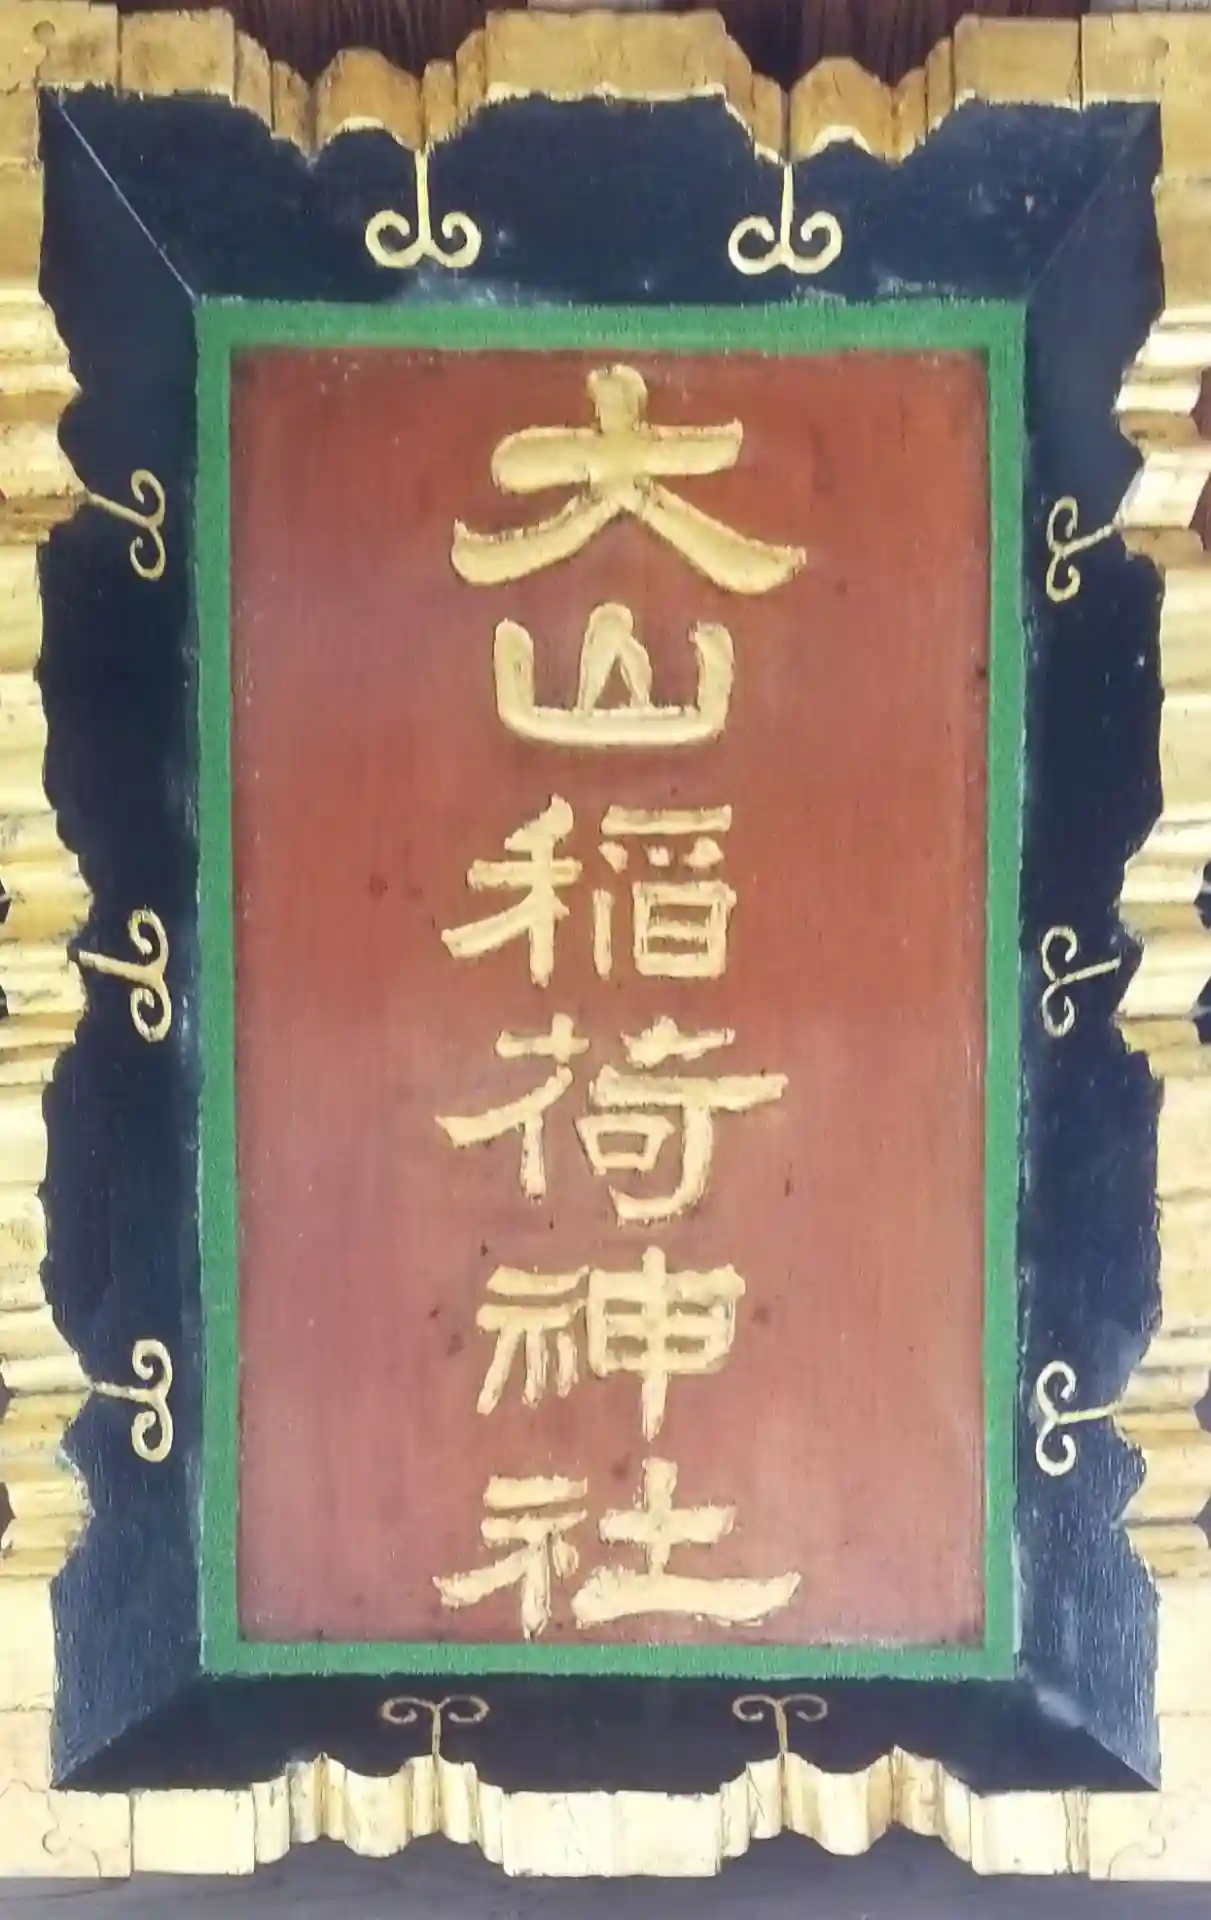 大山稲荷神社